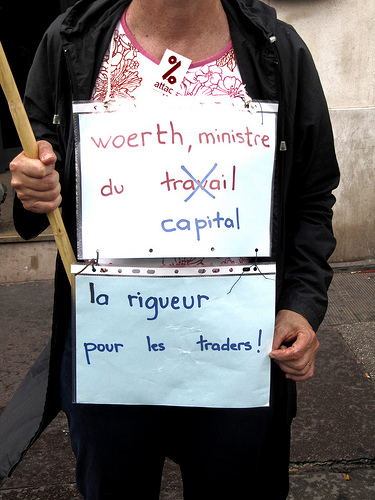 %
attac
woerth, ministre
du travail
capital
la rigueur
pour les traders!